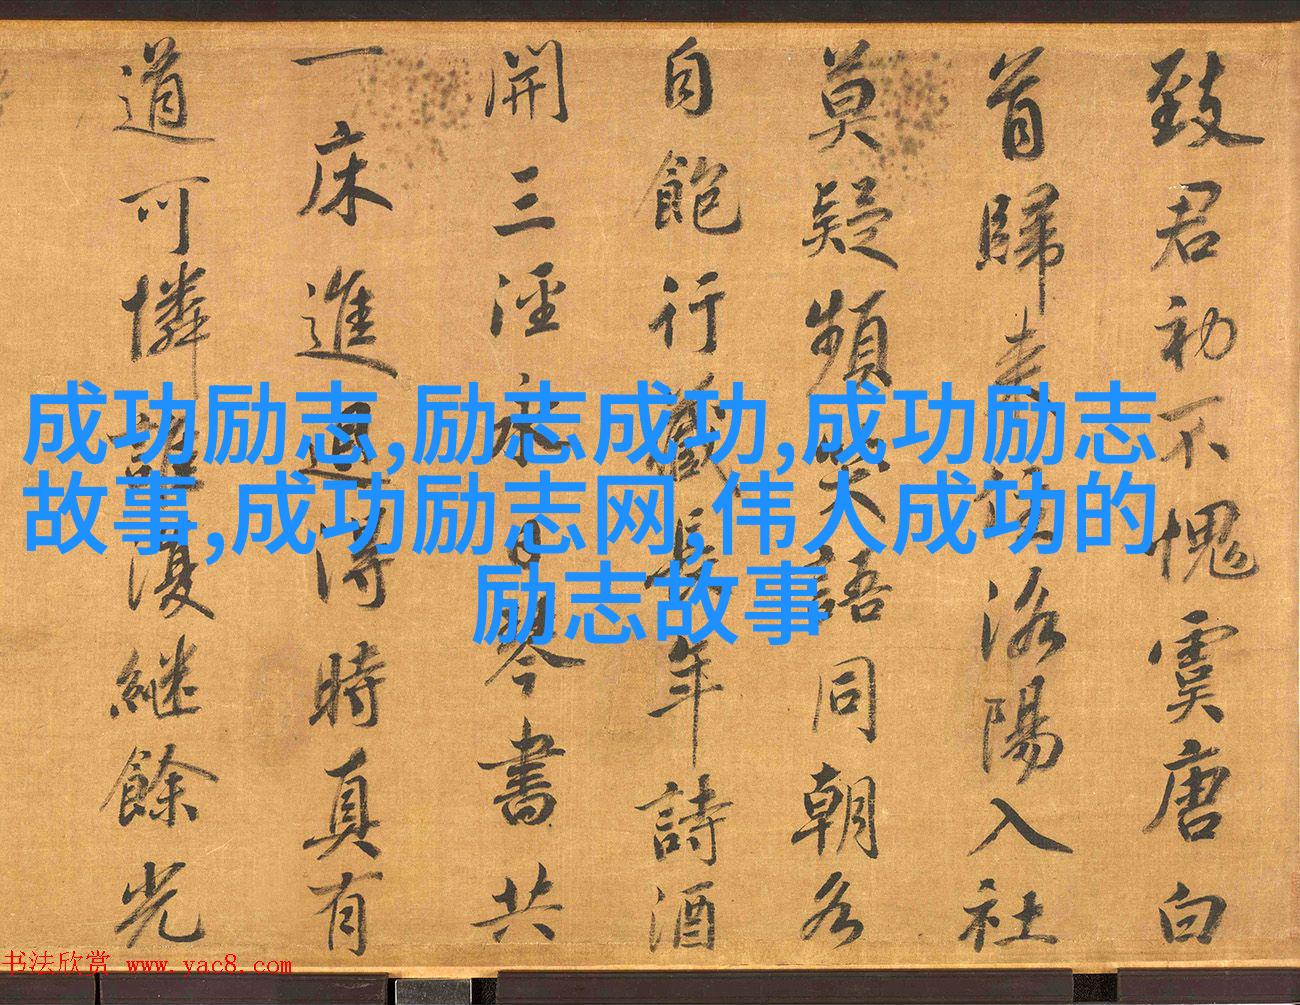 致君初不愧虞唐白
首歸来洛陽入社
莫疑頻笑語同朝各
自飽行藏長年詩酒
開三涇永日琴書共
一床進退得時真有
道可憐誰復繼餘光
成功励志,励志成功,成功励志
故事,成功励志网,伟人成功的
励志故事
书法欣赏 www.yac8.com